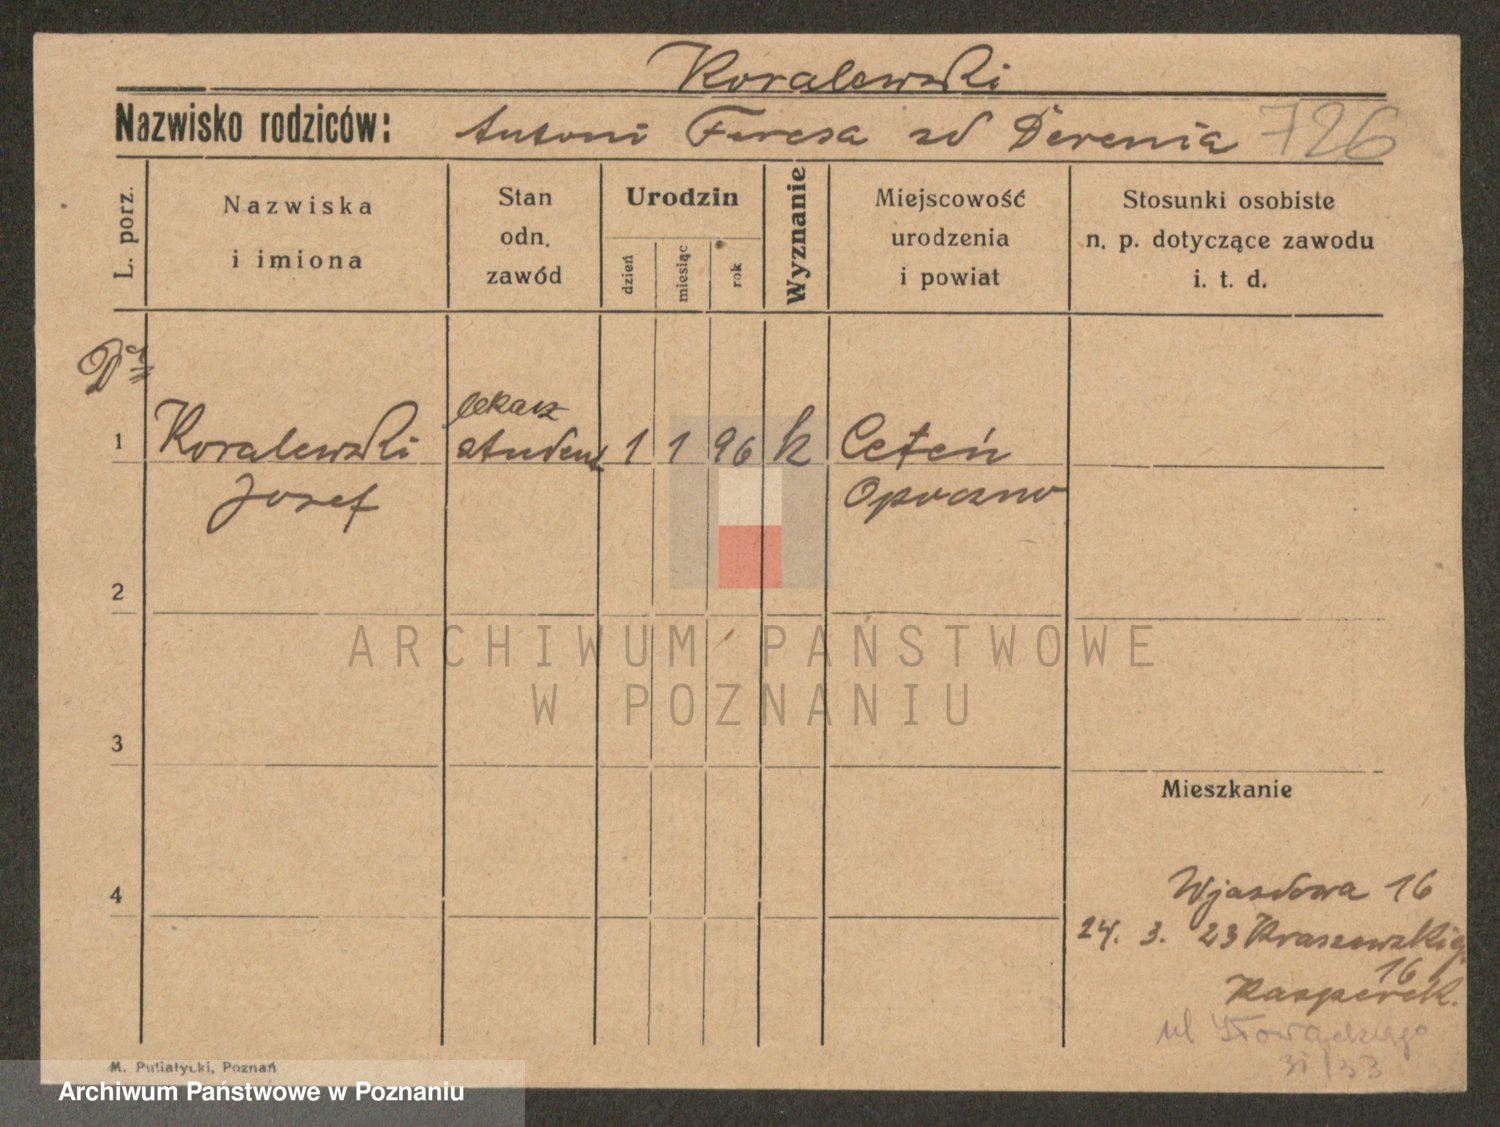 Koralewski
Nazwisko rodziców: Antoni Teresa zd Derenia 726
L. porz.
Nazwiska
i imiona
Stan
odn.
zawód
Urodzin
dzień
miesiąc
rok
Wyznanie
Miejscowość
urodzenia
i powiat
Stosunki osobiste
n. p. dotyczące zawodu
i. t. d.
lekarz
1 Koralewski student 1 1 96 k Ceteń
Josef Opoczno
2
ARCHIWUM PAŃSTWOWE
W POZNANIU
3
Mieszkanie
4
Wjasdowa 16
24. 3. 23 Kraszewskiego
16
Kasperek.
ul Słowackiego
31/33
M. Putiatycki, Poznań
Archiwum Państwowe w Poznaniu